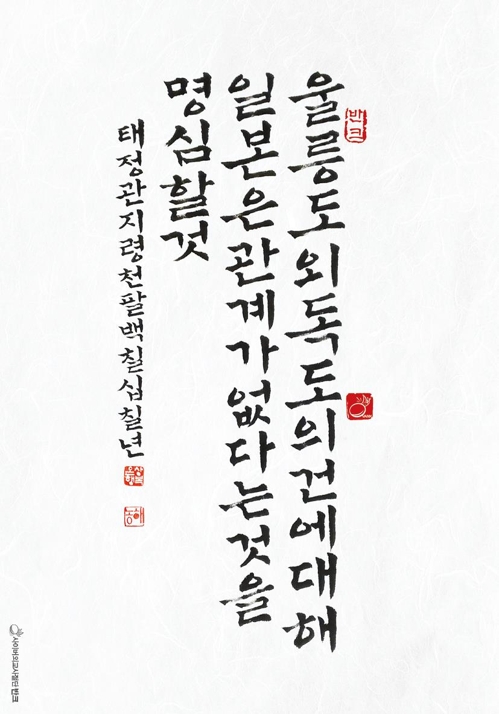 울릉도외독도의건에대해
일본은관계가없다는것을
명심할것
태정관지령천팔백칠십칠년
반크
사이버외교사절단 반크